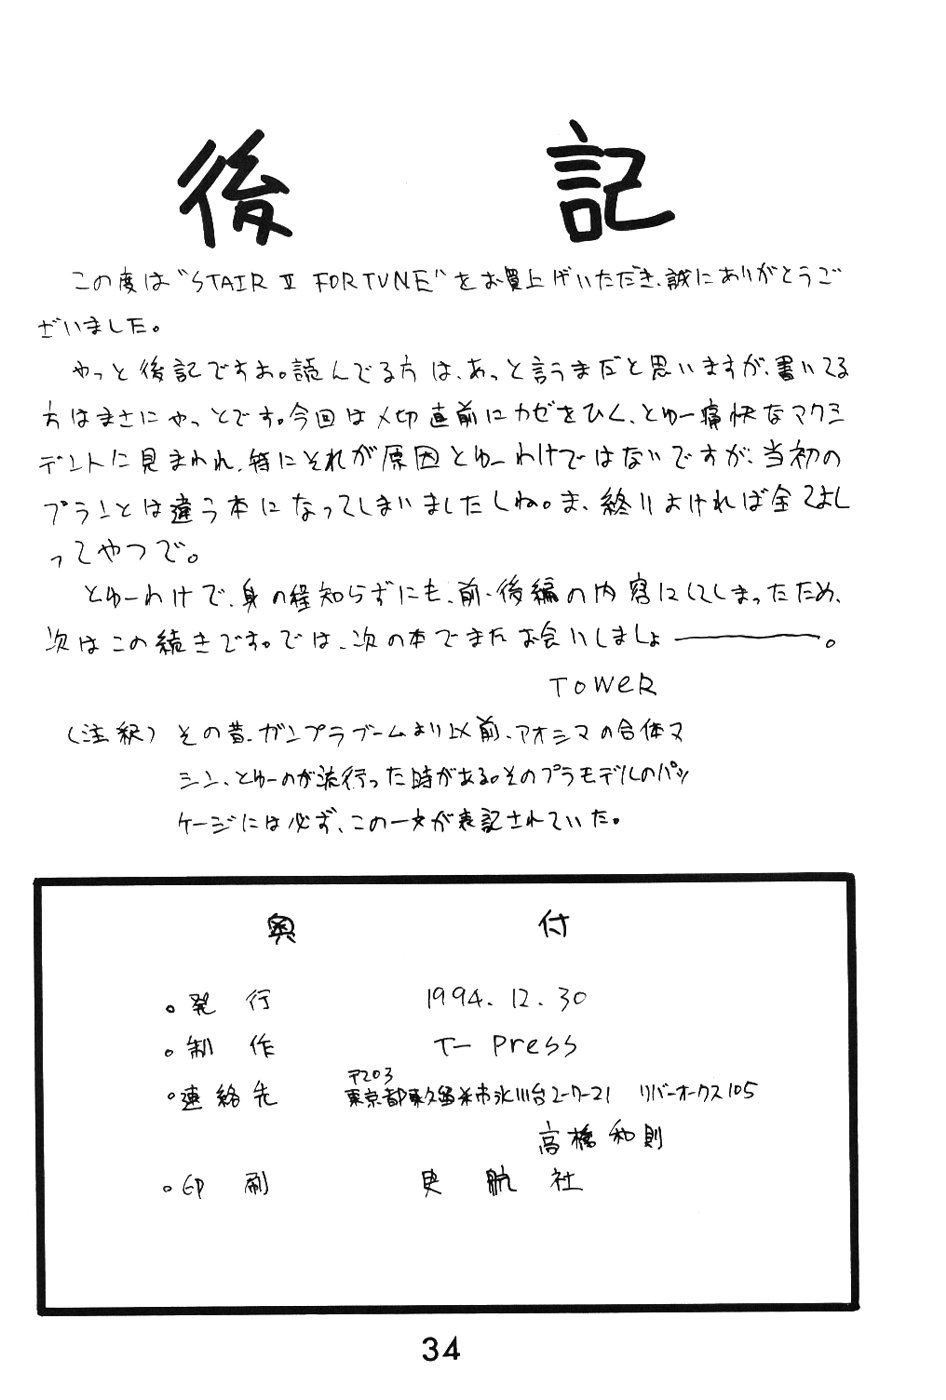 後記
この度は"STAIR Ⅱ FORTUNE"をお買上げいただき、誠にありがとうご
ざいました。
やっと後記ですよ。読んでる方は、あっと言うまだと思いますが、書いてる
方はまさにやっとです。今回は〆切直前にカゼをひく、とゆー痛快なアクシ
デントに見まわれ、特にそれが原因とゆーわけではないですが、当初の
プランとは違う本になってしまいましたしね。ま、終りよければ全てよし
ってやつで。
とゆーわけで、身の程知らずにも、前・後編の内容にしてしまったため、
次はこの続きです。では、次の本でまたお会いしましょ―――。
TOWER
(注釈) その昔、ガンプラブームより以前、アオシマの合体マ
シン、とゆーのが流行った時がある。そのプラモデルのパッ
ケージには必ず、この一文が表記されていた。
奥付
。発行 1994.12.30
。制作 T-Press
〒203
。連絡先 東京都東久留米市氷川台2-7-21 リバーオークス105
高橋和則
。印刷 史航社
34